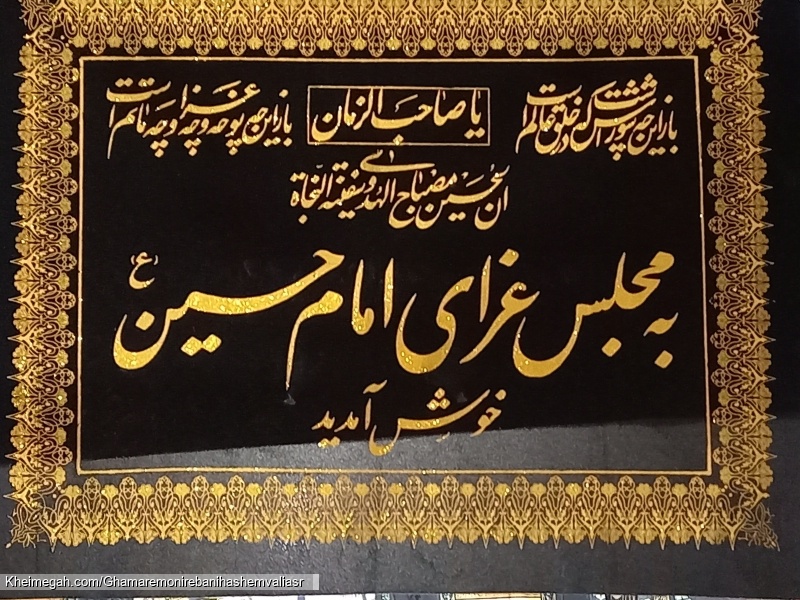 باز این چه شورش است که در خلق عالم است
یا صاحب الزمان
باز این چه نوحه و چه عزا و چه ماتم است
ان الحسین مصباح الهدی و سفینة النجاة
به مجلس عزای امام حسین (ع)
خوش آمدید
Kheimegah.com/Ghamaremonirebanihashemvaliasr